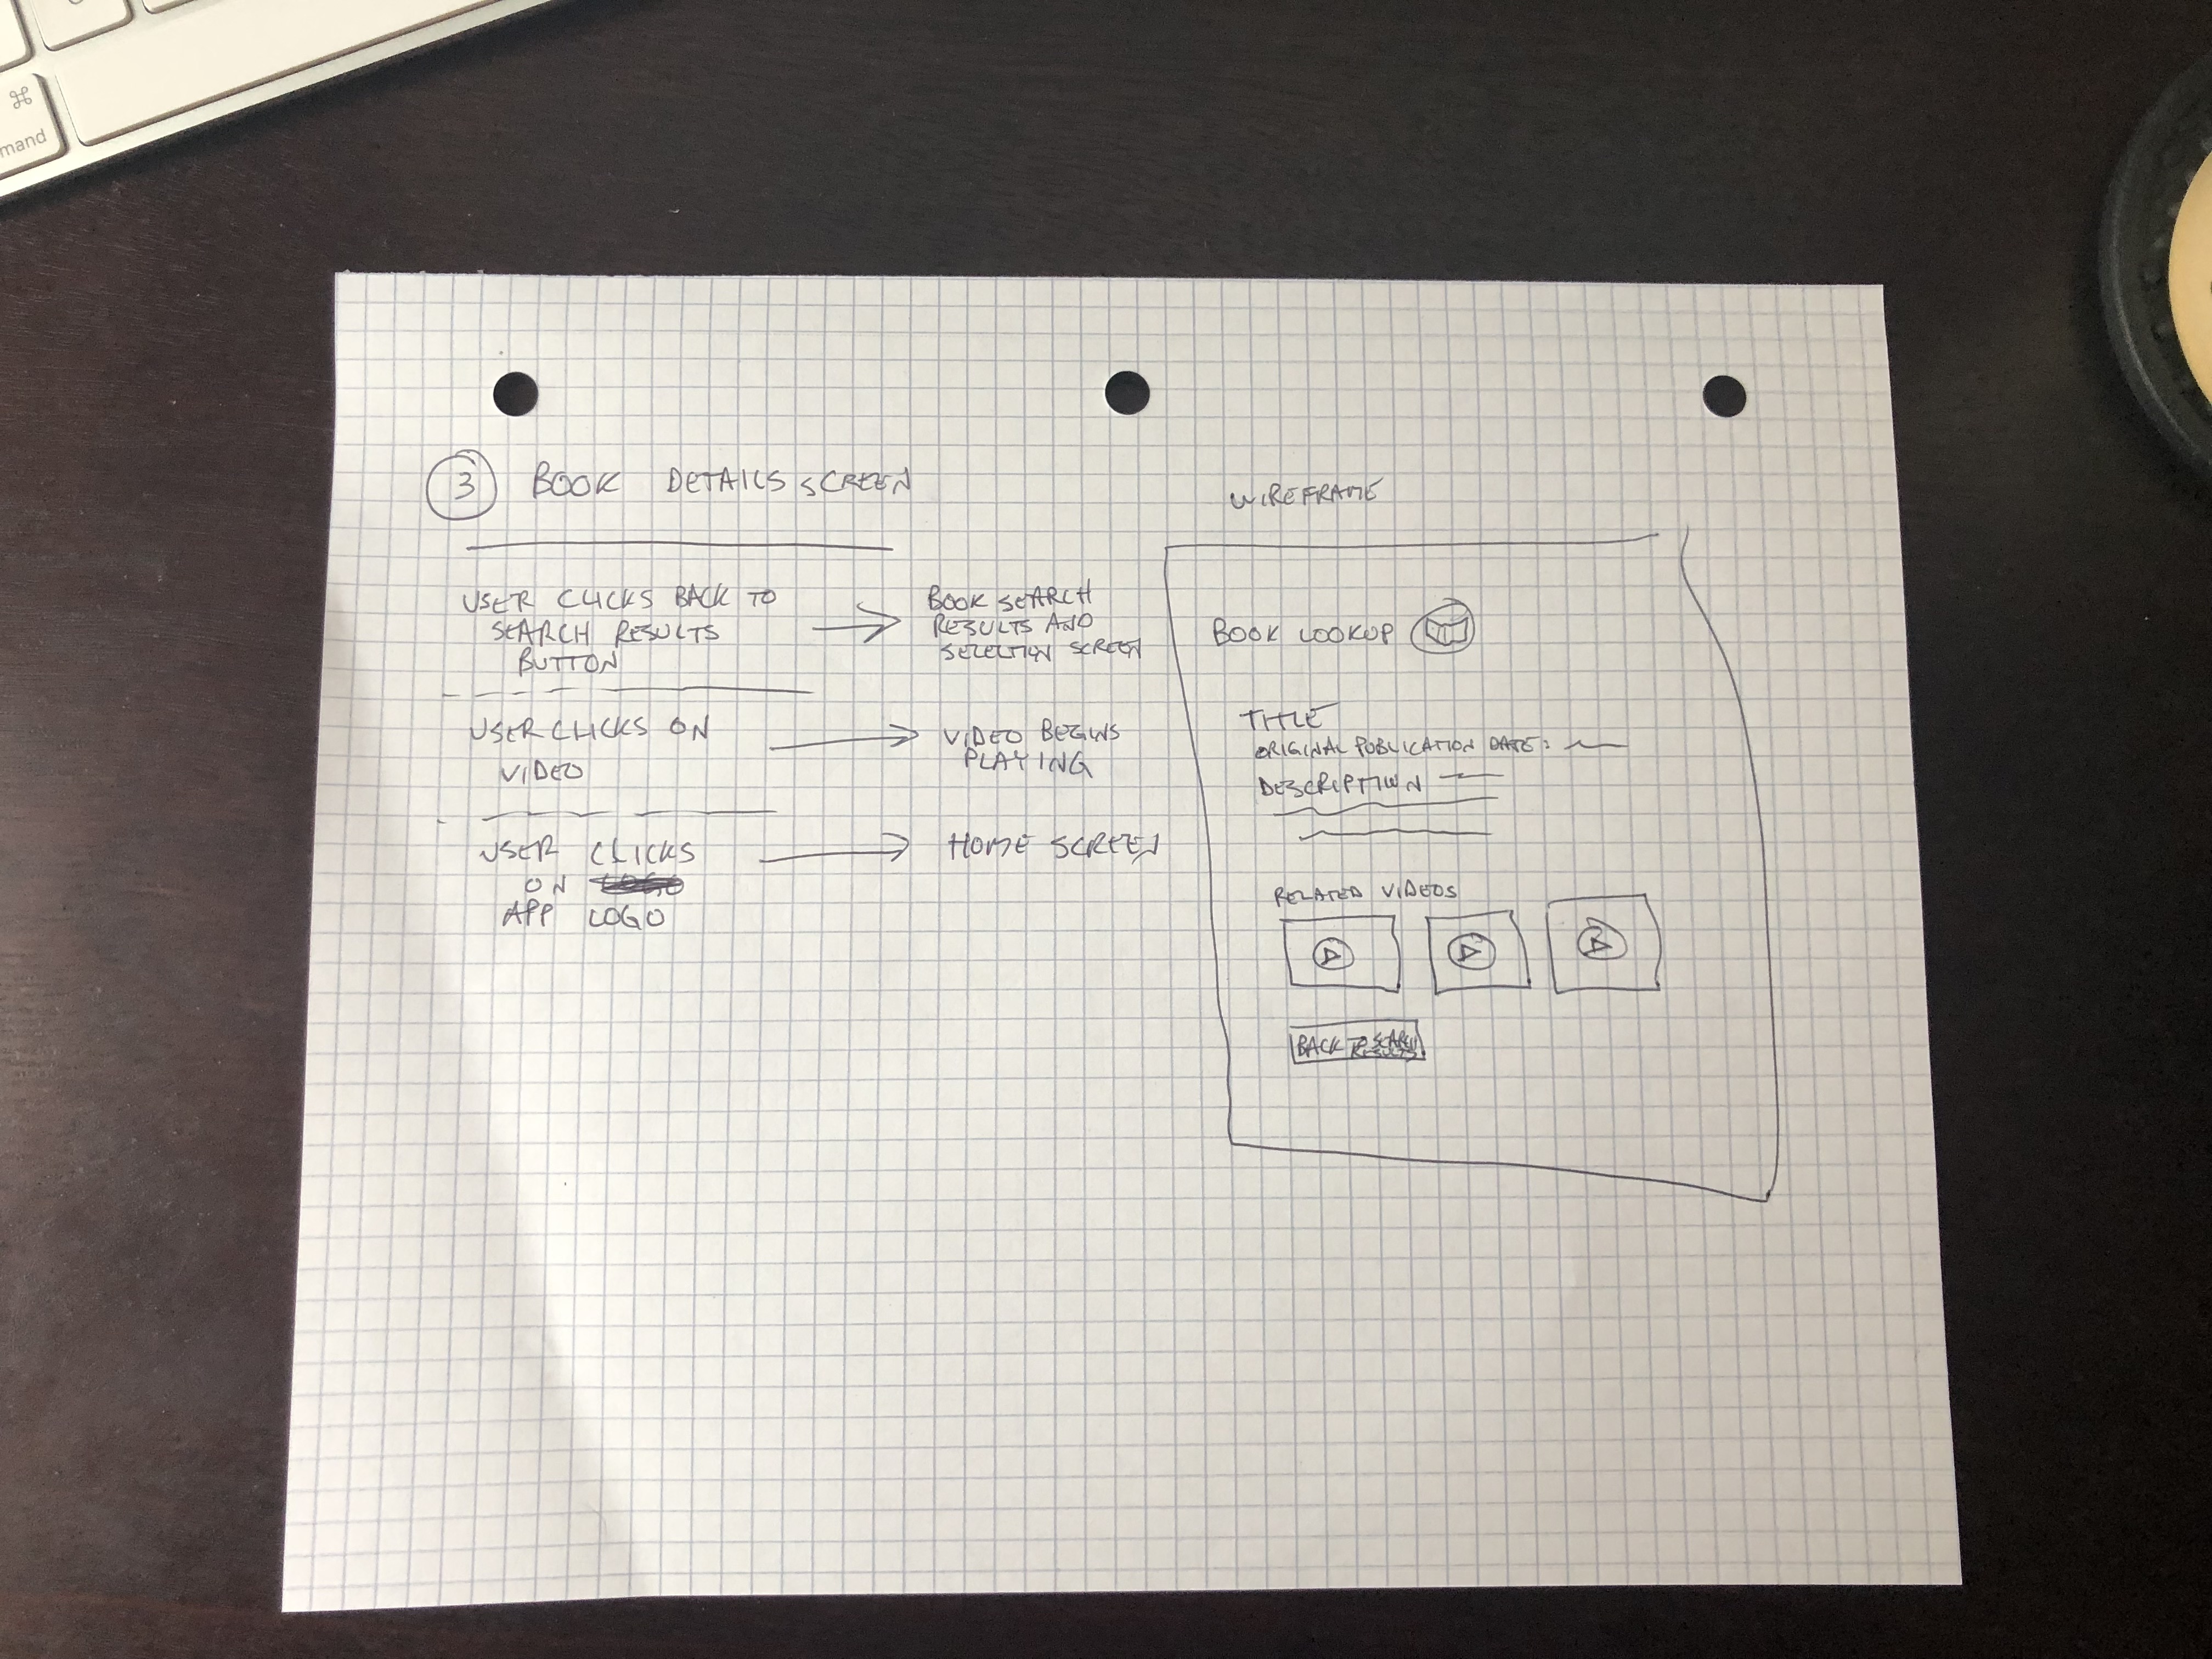 ⌘
mand
3 BOOK DETAILS SCREEN
USER CLICKS BACK TO
SEARCH RESULTS
BUTTON
BOOK SEARCH
RESULTS AND
SELECTION SCREEN
USER CLICKS ON
VIDEO
VIDEO BEGINS
PLAYING
USER CLICKS
ON
APP LOGO
HOME SCREEN
WIREFRAME
BOOK LOOKUP
TITLE
ORIGINAL PUBLICATION DATE:
DESCRIPTION
RELATED VIDEOS
BACK TO SEARCH
RESULTS